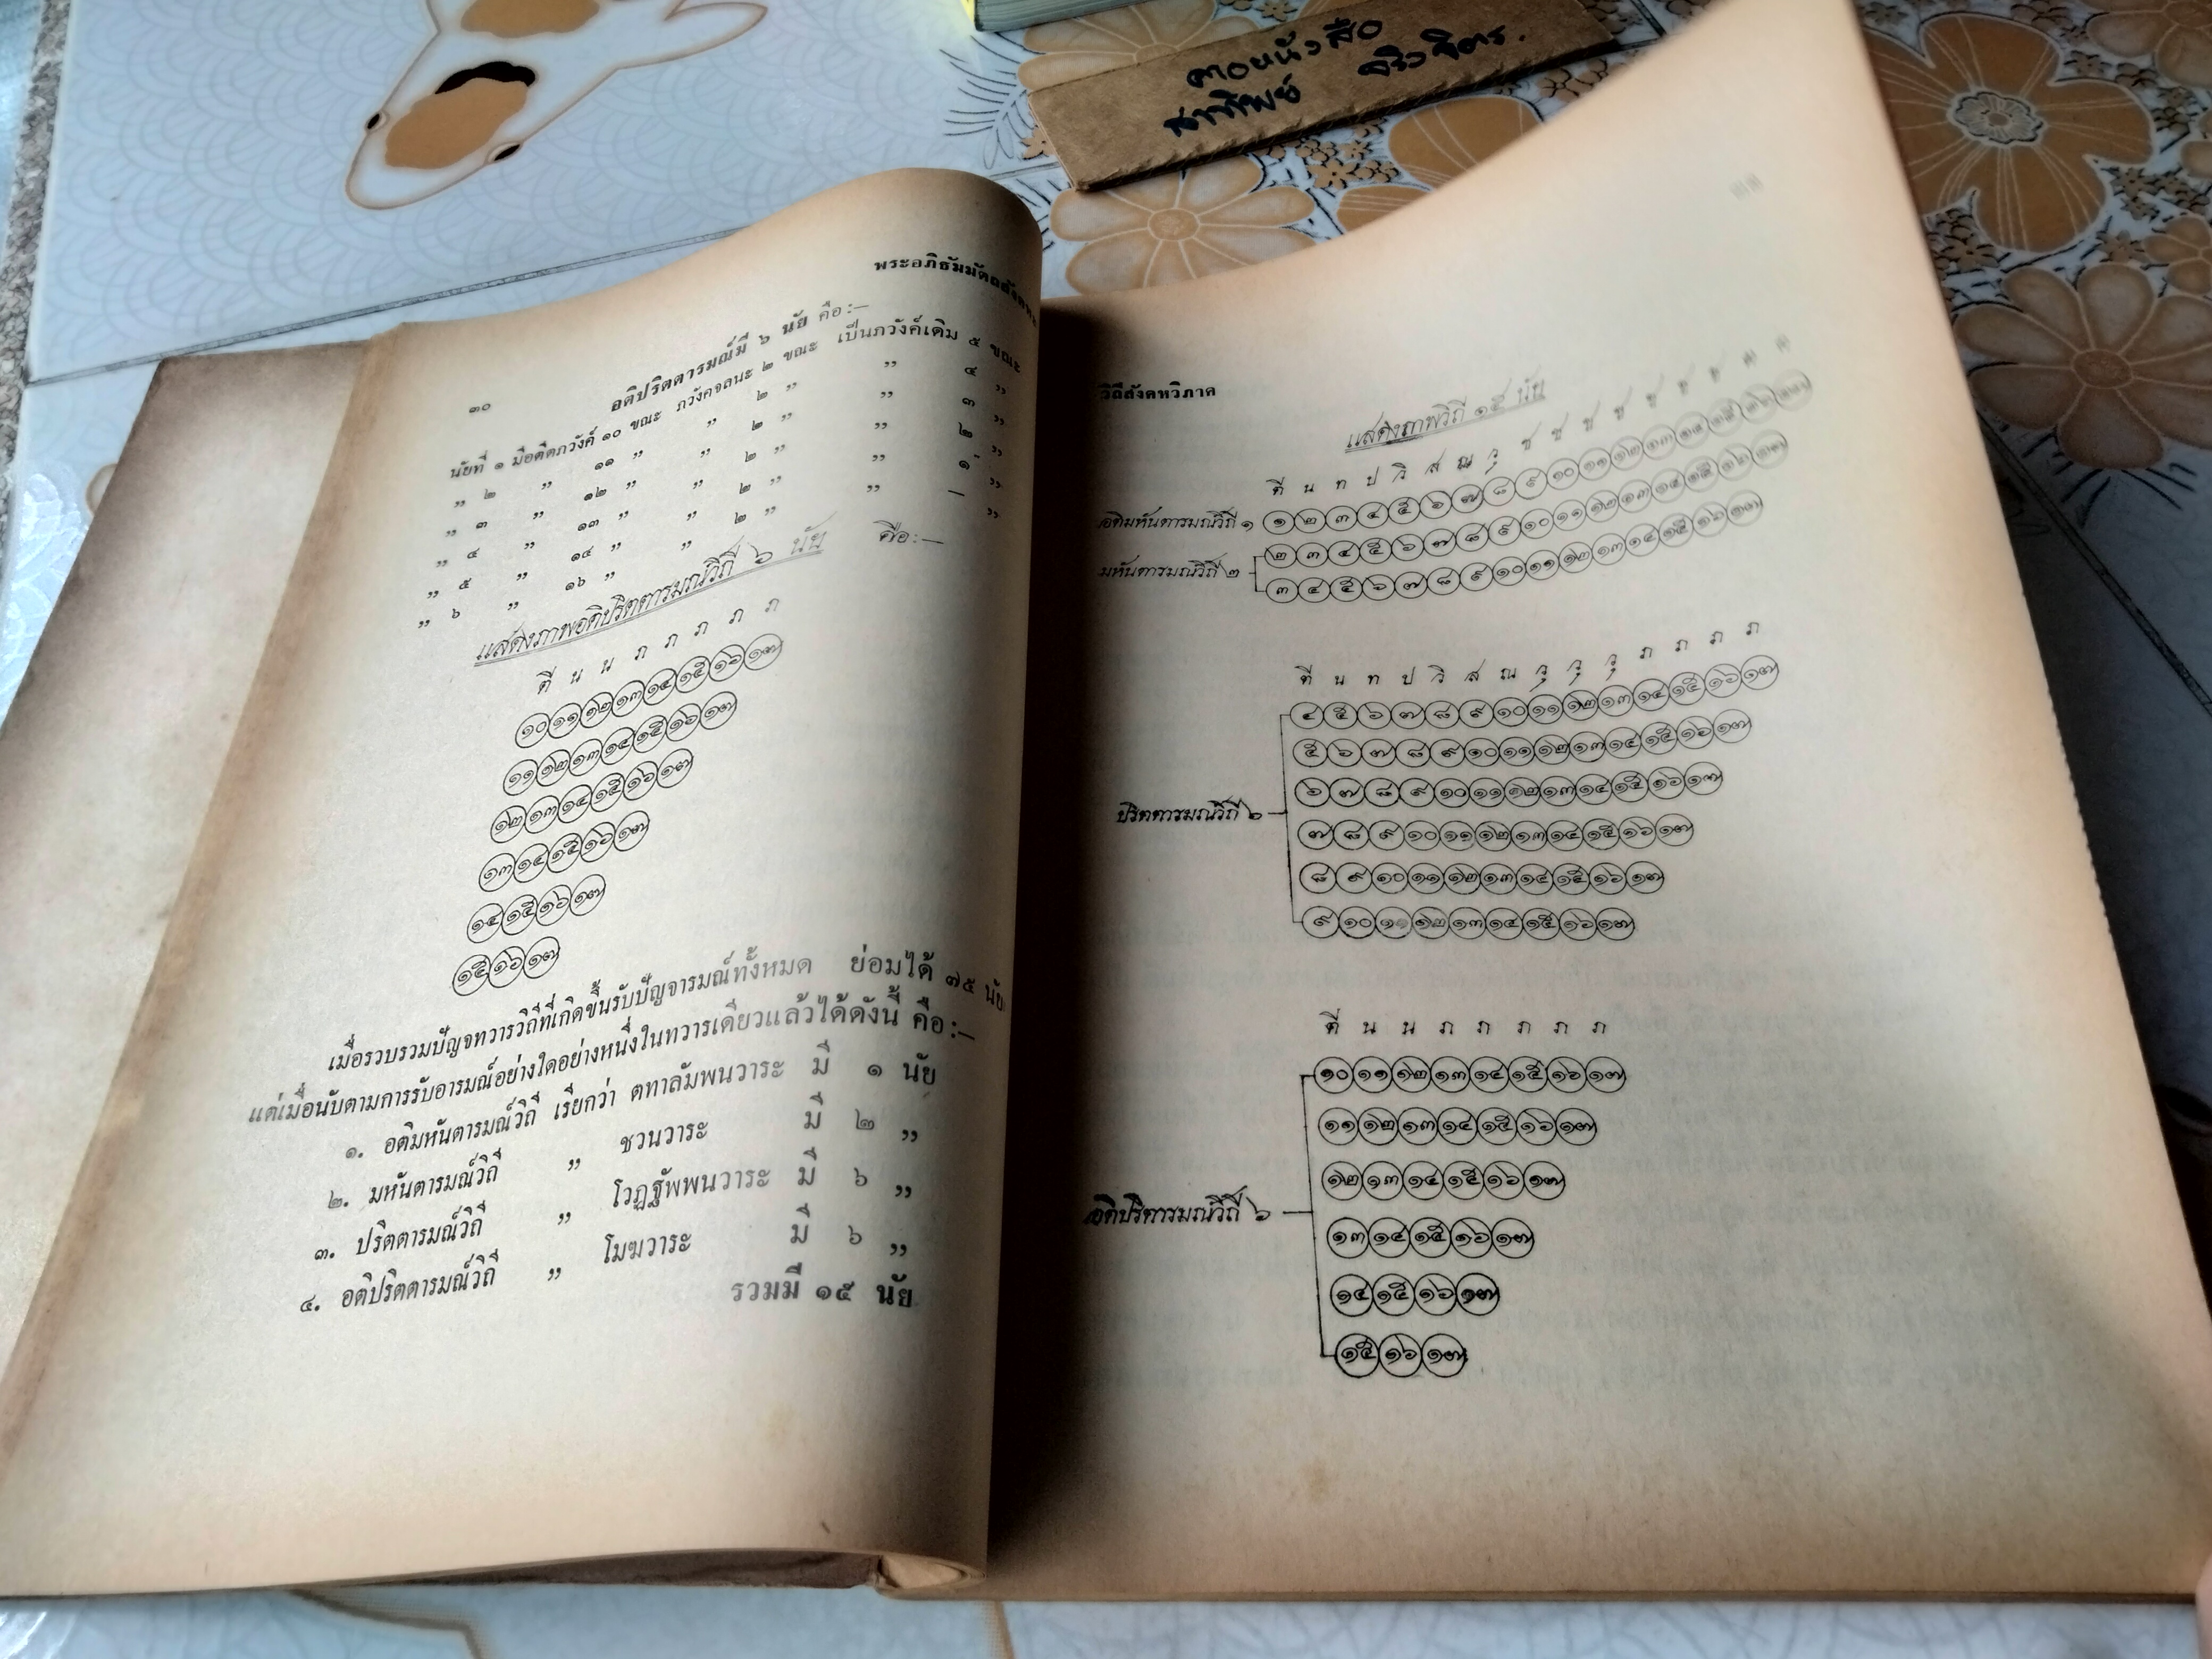 ตอหนังสือ
สาทิพย์ จิวจิตร.
๓๐
พระอภิธัมมัตถสังคหะ
อติปริตตารมณ์มี ๖ นัย คือ:—
นัยที่ ๑ มีอตีตภวังค์ ๑๐ ขณะ ภวังคจลนะ ๒ ขณะ เป็นภวังค์เดิม ๕ ขณะ
„ ๒ „ ๑๑ „ „ ๒ „ „ ๔ „
„ ๓ „ ๑๒ „ „ ๒ „ „ ๓ „
„ ๔ „ ๑๓ „ „ ๒ „ „ ๒ „
„ ๕ „ ๑๔ „ „ ๒ „ „ ๑ „
„ ๖ „ ๑๖ „ „ ๒ „ „ — „
แสดงภาพอติปริตตารมณ์วิถี ๖ นัย คือ:—
ตี น น ภ ภ ภ ภ ภ
๑๐ ๑๑ ๑๒ ๑๓ ๑๔ ๑๕ ๑๖ ๑๗
๑๑ ๑๒ ๑๓ ๑๔ ๑๕ ๑๖ ๑๗
๑๒ ๑๓ ๑๔ ๑๕ ๑๖ ๑๗
๑๓ ๑๔ ๑๕ ๑๖ ๑๗
๑๔ ๑๕ ๑๖ ๑๗
๑๕ ๑๖ ๑๗
เมื่อรวบรวมปัญจทวารวิถีที่เกิดขึ้นรับปัญจารมณ์ทั้งหมด ย่อมได้ ๗๕ นัย
แต่เมื่อนับตามการรับอารมณ์อย่างใดอย่างหนึ่งในทวารเดียวแล้วได้ดังนี้ คือ:—
๑. อติมหันตารมณ์วิถี เรียกว่า ตทาลัมพนวาระ มี ๑ นัย
๒. มหันตารมณ์วิถี „ ชวนวาระ มี ๒ „
๓. ปริตตารมณ์วิถี „ โวฏฐัพพนวาระ มี ๖ „
๔. อติปริตตารมณ์วิถี „ โมฆวาระ มี ๖ „
รวมมี ๑๕ นัย
วิถีสังคหวิภาค
แสดงภาพวิถี ๑๕ นัย
ตี น ท ป วิ ส ณ วุ ช ช ช ช ช ช ช ต ต
อติมหันตารมณ์วิถี ๑ ๑ ๒ ๓ ๔ ๕ ๖ ๗ ๘ ๙ ๑๐ ๑๑ ๑๒ ๑๓ ๑๔ ๑๕ ๑๖ ๑๗
๒ ๓ ๔ ๕ ๖ ๗ ๘ ๙ ๑๐ ๑๑ ๑๒ ๑๓ ๑๔ ๑๕ ๑๖ ๑๗
มหันตารมณ์วิถี ๒
๓ ๔ ๕ ๖ ๗ ๘ ๙ ๑๐ ๑๑ ๑๒ ๑๓ ๑๔ ๑๕ ๑๖ ๑๗
ตี น ท ป วิ ส ณ วุ วุ วุ ภ ภ ภ ภ
๔ ๕ ๖ ๗ ๘ ๙ ๑๐ ๑๑ ๑๒ ๑๓ ๑๔ ๑๕ ๑๖ ๑๗
๕ ๖ ๗ ๘ ๙ ๑๐ ๑๑ ๑๒ ๑๓ ๑๔ ๑๕ ๑๖ ๑๗
๖ ๗ ๘ ๙ ๑๐ ๑๑ ๑๒ ๑๓ ๑๔ ๑๕ ๑๖ ๑๗
ปริตตารมณ์วิถี ๖
๗ ๘ ๙ ๑๐ ๑๑ ๑๒ ๑๓ ๑๔ ๑๕ ๑๖ ๑๗
๘ ๙ ๑๐ ๑๑ ๑๒ ๑๓ ๑๔ ๑๕ ๑๖ ๑๗
๙ ๑๐ ๑๑ ๑๒ ๑๓ ๑๔ ๑๕ ๑๖ ๑๗
ตี น น ภ ภ ภ ภ ภ
๑๐ ๑๑ ๑๒ ๑๓ ๑๔ ๑๕ ๑๖ ๑๗
๑๑ ๑๒ ๑๓ ๑๔ ๑๕ ๑๖ ๑๗
๑๒ ๑๓ ๑๔ ๑๕ ๑๖ ๑๗
อติปริตตารมณ์วิถี ๖
๑๓ ๑๔ ๑๕ ๑๖ ๑๗
๑๔ ๑๕ ๑๖ ๑๗
๑๕ ๑๖ ๑๗